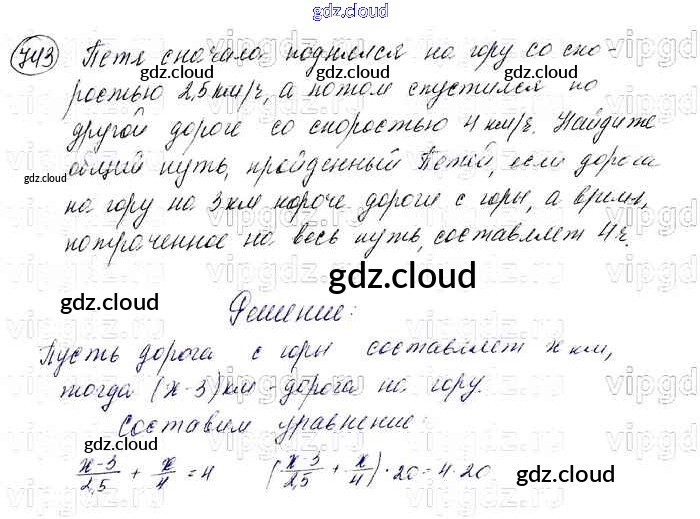 gdz.cloud
743 Петя сначала поднялся на гору со ско-
gdz.cloud gdz.cloud
ростью 2,5 км/ч, а потом спустился по
другой дороге со скоростью 4 км/ч. Найдите
gdz.cloud gdz.cloud
общий путь, пройденный Петей, если дорога
на гору на 3 км короче дороги с горы, а время,
потраченное на весь путь, составляет 4 ч.
gdz.cloud gdz.cloud gdz.cloud
Решение:
Пусть дорога с горы составляет x км,
тогда (x-3) км - дорога на гору.
Составим уравнение:
gdz.cloud gdz.cloud
(x-3)/2,5 + x/4 = 4 ((x-3)/2,5 + x/4) · 20 = 4 · 20
gdz.cloud gdz.cloud